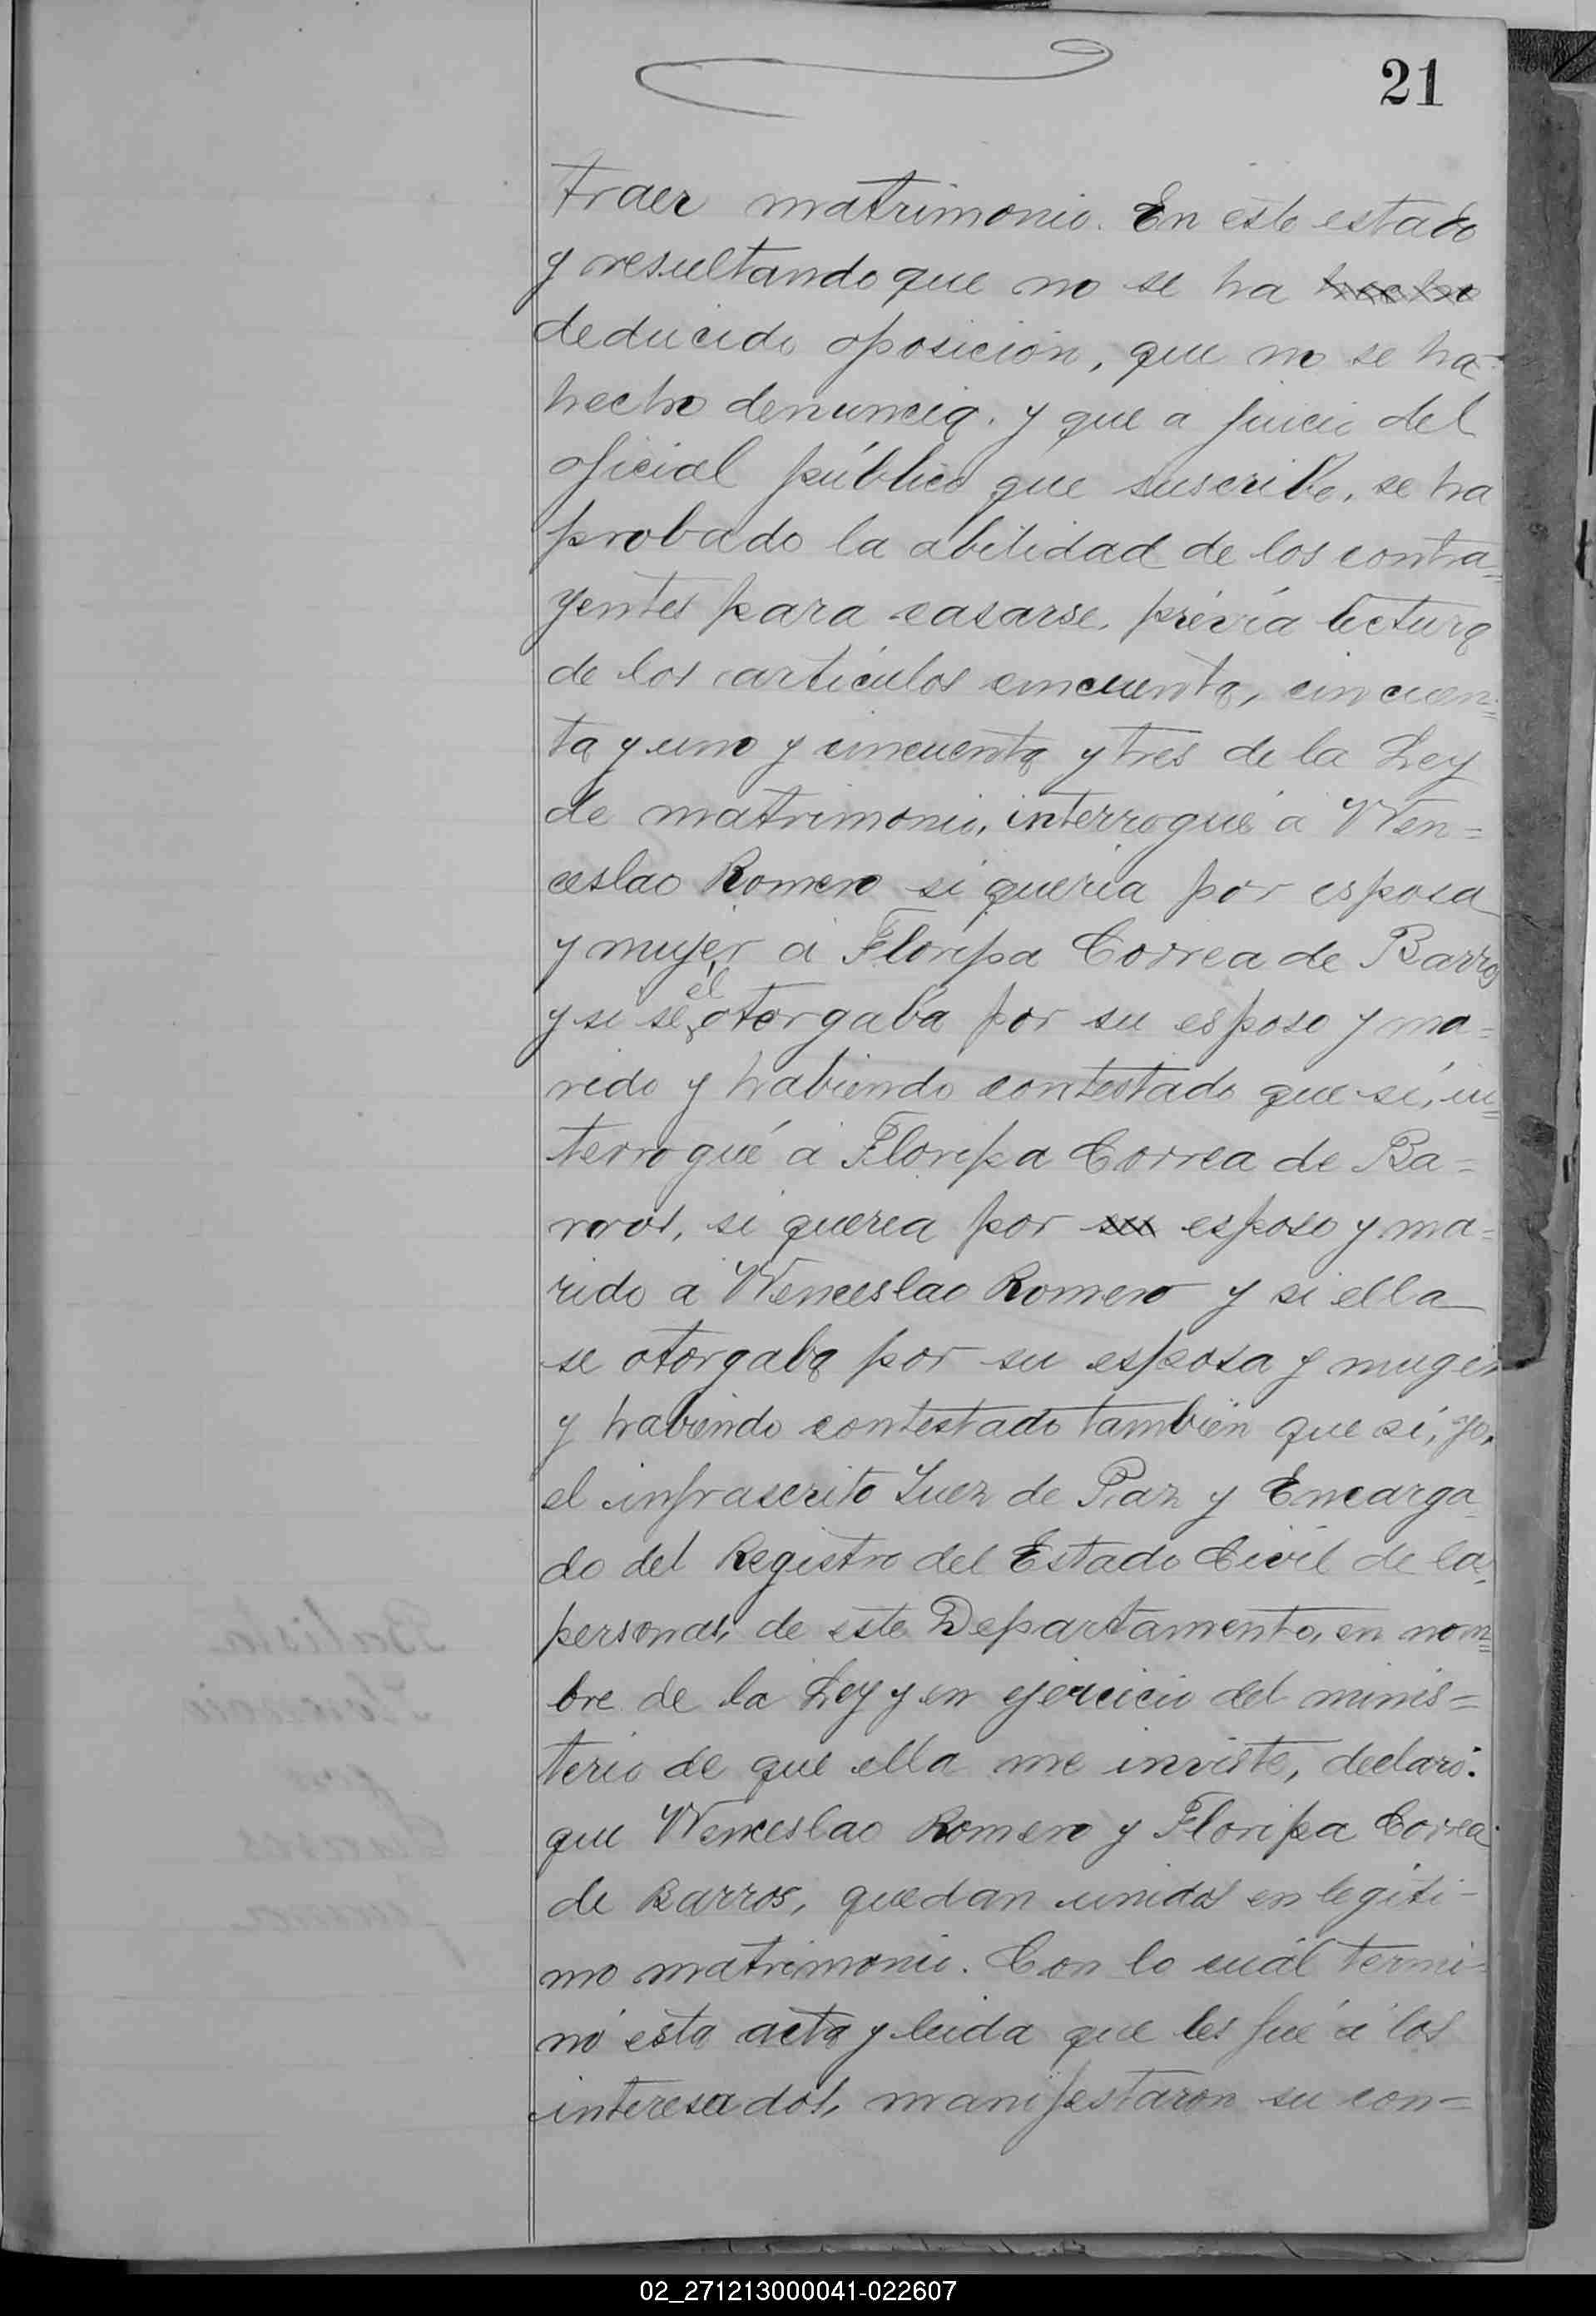 21
traer matrimonio. En este estado
y resultando que no se ha hecho
deducido oposición, que no se ha
hecho denuncia. y que a juicio del
oficial público que suscribe, se ha
probado la abilidad de los contra=
yentes para casarse, prévia lectura
de los artículos cincuenta, cincuen=
ta y uno y cincuenta y tres de la Ley
de matrimonio, interrogué á Wen=
ceslao Romero si queria por esposa
y mujer á Floripa Correa de Barros
y si se él otorgaba por su esposo y ma=
rido y habiendo contestado que sí, in=
terrogué á Floripa Correa de Ba=
rros, si queria por su esposo y ma=
rido a Wenceslao Romero y si ella
se otorgaba por su esposa y muger
y habiendo contestado también que sí, yo,
el infrascrito Juez de Paz y Encarga=
do del Registro del Estado Civil de las
personas, de este Departamento, en nom=
bre de la Ley y en ejercicio del minis=
terio de que ella me inviste, declaro:
que Wenceslao Romero y Floripa Correa
de Barros, quedan unidos en legíti-
mo matrimonio. Con lo cuál termi=
nó esta acta y leida que les fué á los
interesados, manifestaron su con=
02_271213000041-022607